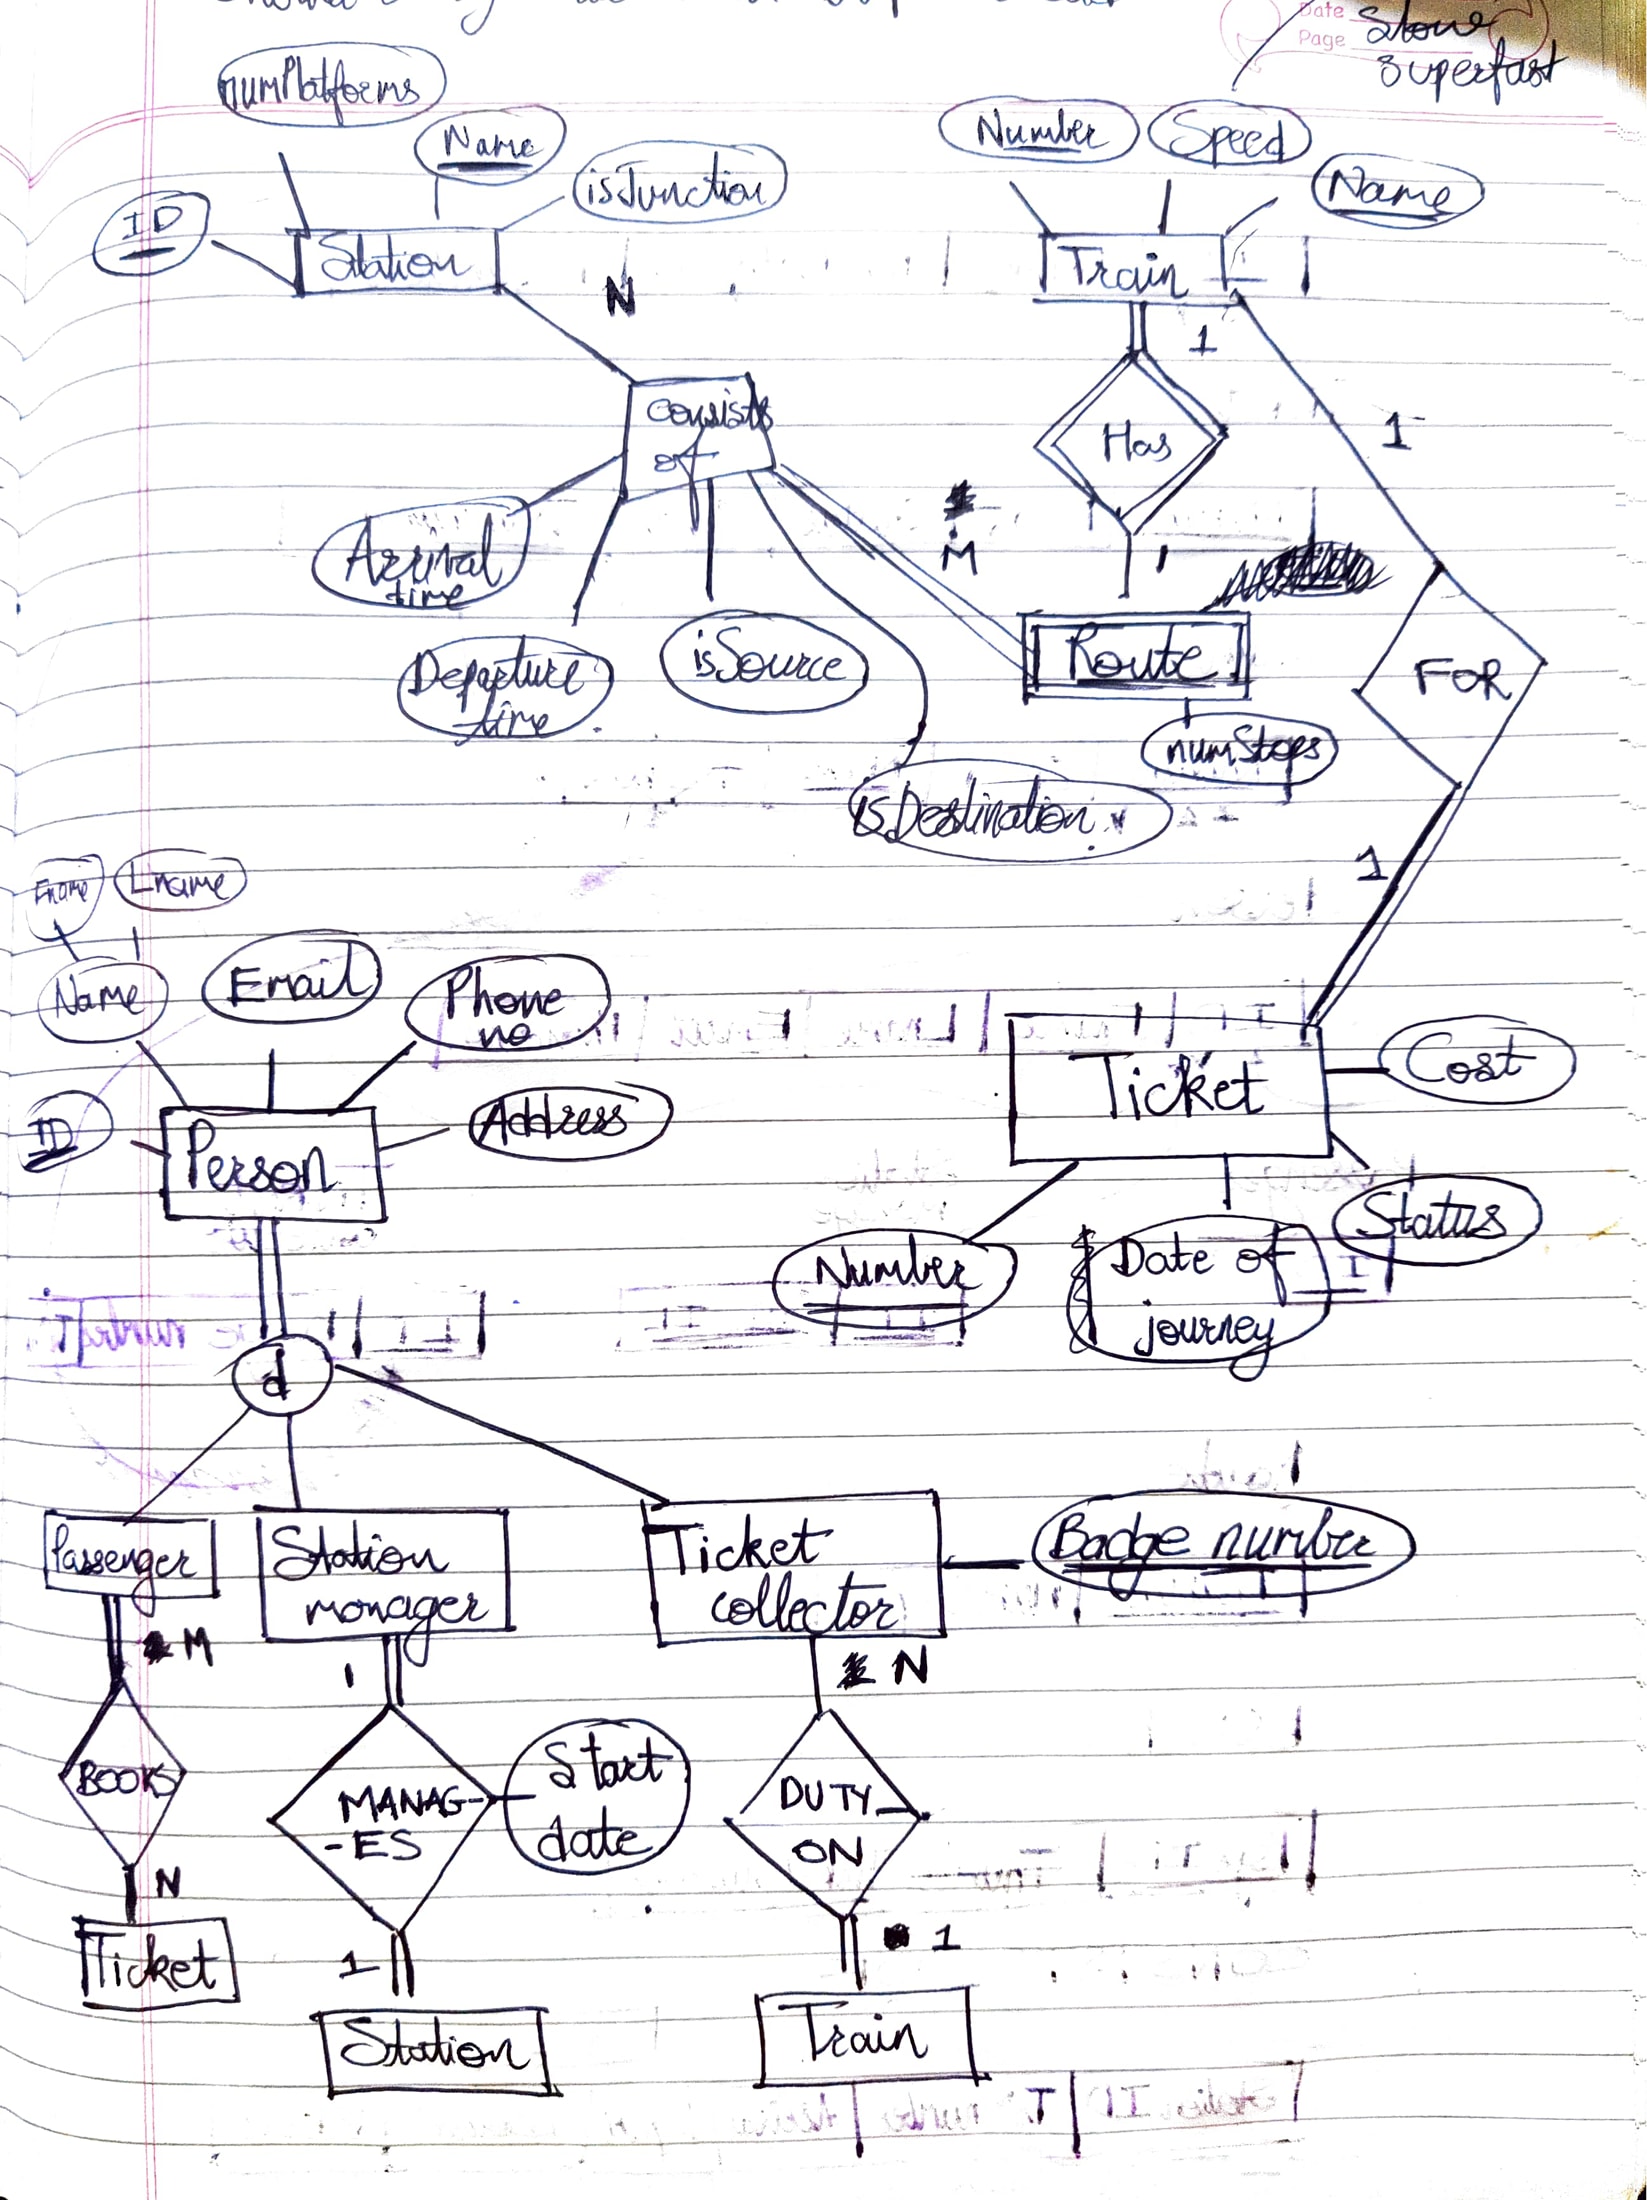 Date
Page
Slow
superfast
numPlatforms
Name
isJunction
ID
Station
Number
Speed
Name
Train
N
1
consists
of
Has
1
M
1
Arrival
time
Departure
time
isSource
isDestination
Route
numStops
FOR
1
Fname
Lname
Name
Email
Phone
no
ID
Address
Person
Ticket
Cost
Status
Number
Date of
journey
d
Passenger
Station
manager
Ticket
collector
Badge number
M
1
N
BOOKS
MANAG-
-ES
Start
date
DUTY
ON
N
1
1
Ticket
Station
Train